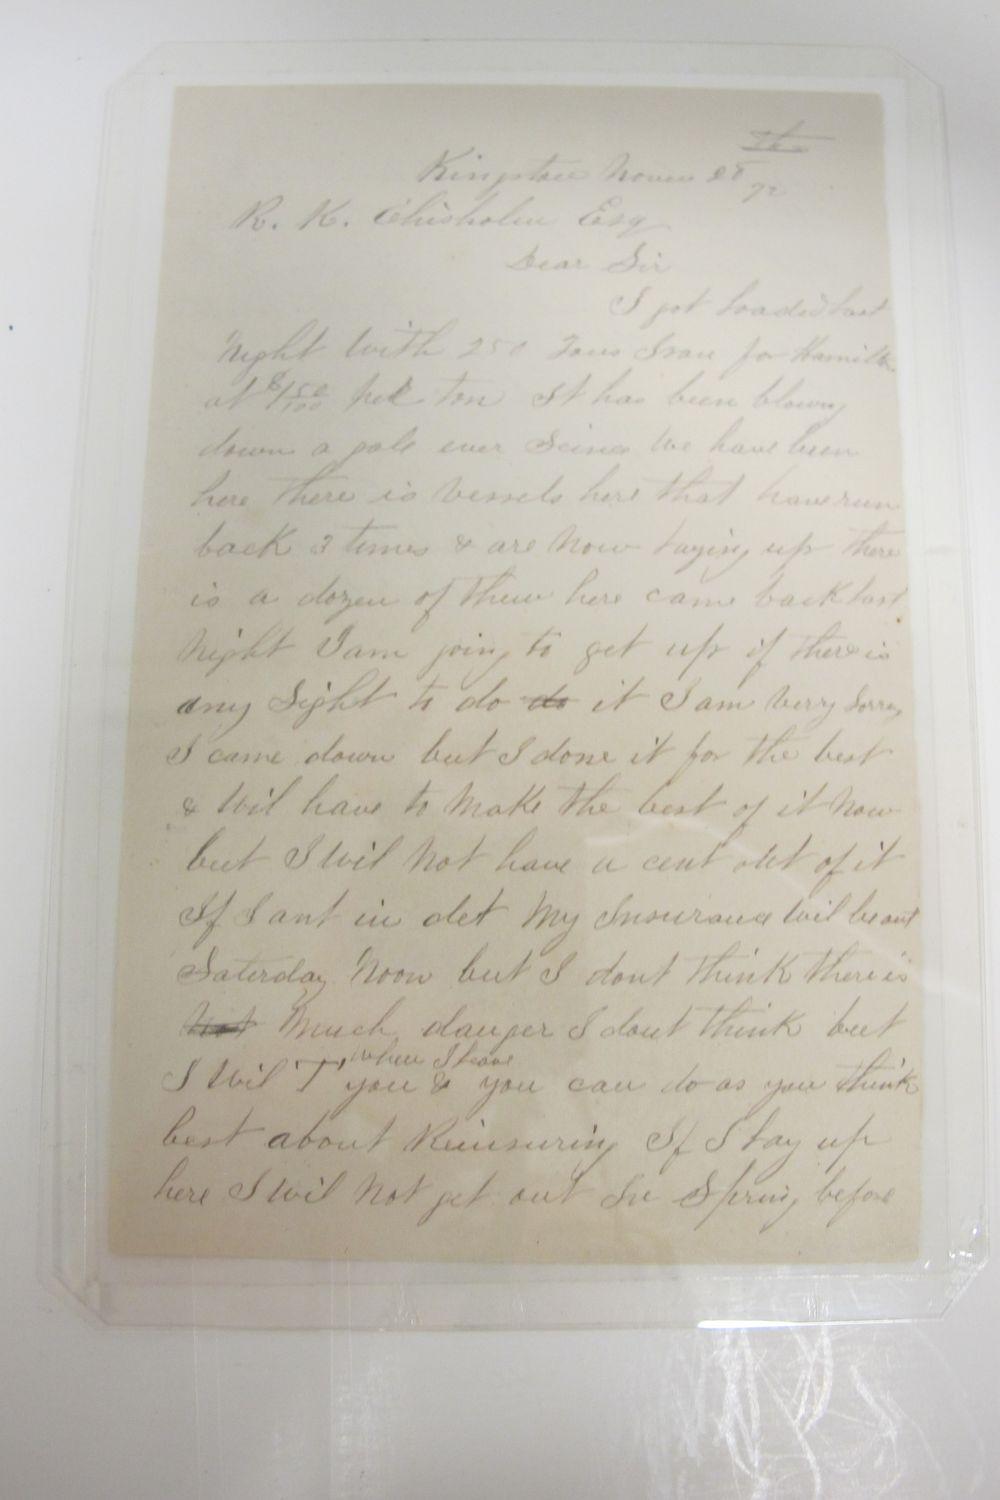 Kingston Novem 28th 72
R. K. Chisholm Esq
Dear Sir
I got loaded last
Night with 250 Tons Iron for Hamilton
at $1 50/100 per ton It has been blowing
down a gale ever Scince We have been
here there is Vessels here that have run
back 3 times & are Now laying up there
is a dozen of them here came back last
Night I am going to get up if there is
any Sight to do do it I am Verry Sorry
I came down but I done it for the best
& Wil have to Make the best of it Now
but I Wil Not have a cent out of it
If I ant in det My Insurance Wil be out
Saterday Noon but I dont think there is
Not Much danger I dont think but
I Wil T you when I leave & you can do as you think
best about Reinsuring If I lay up
here I Wil Not get out In Spring before